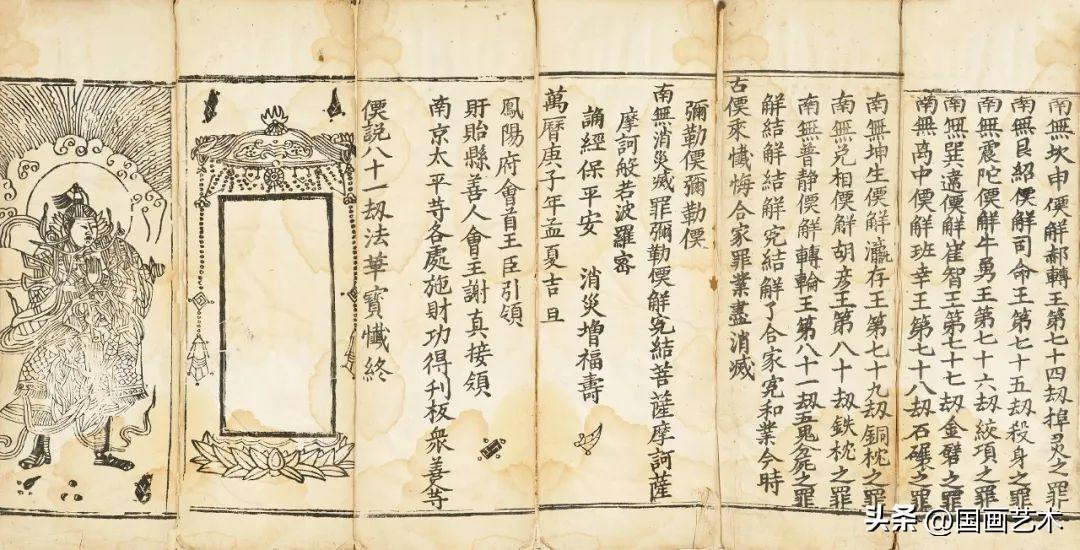 南無坎申㒓解郝轉王第七十四刼埋灵之罪
南無艮紹㒓解司命王第七十五刼殺身之罪
南無震陀㒓解牛勇王第七十六刼絞項之罪
南無巽邊㒓解崔智王第七十七刼金劈之罪
南無离中㒓解班幸王第七十八刼石碾之罪
南無坤生㒓解瀛存王第七十九刼銅枕之罪
南無兊相㒓解胡彦王第八十刼鉄枕之罪
南無普静㒓解轉輪王第八十一刼五鬼分屍之罪
解結解結解寃結解了合家寃和業今時
古㒓來懺悔合家罪業盡消滅
彌勒㒓彌勒㒓
南無消災滅罪彌勒㒓解寃結菩薩摩訶薩
摩訶般若波羅宻
誦經保平安 消災增福壽
萬曆庚子年孟夏吉旦
鳳陽府會首王臣引領
盱眙縣善人會主謝真接領
南京太平等各處施財功得刋板衆善等
㒓説八十一刼法華寳懺終
头条 @国画艺术